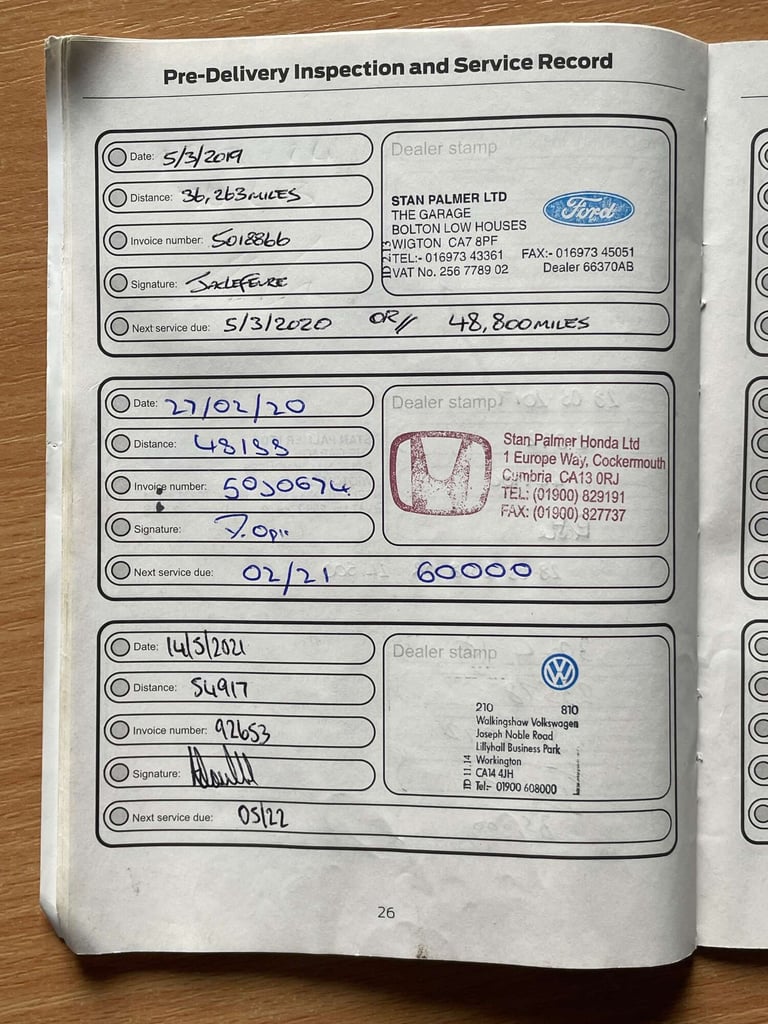 Pre-Delivery Inspection and Service Record
Date: 5/3/2019
Distance: 36,263 MILES
Invoice number: 5018866
Signature:
Next service due: 5/3/2020 OR// 48,800 MILES
Dealer stamp
STAN PALMER LTD
THE GARAGE
BOLTON LOW HOUSES
WIGTON CA7 8PF
TEL:- 016973 43361 FAX:- 016973 45051
VAT No. 256 7789 02 Dealer 66370AB
ID 2.13
Ford
Date: 27/02/20
Distance: 48133
Invoice number: 5030674
Signature:
Next service due: 02/21 60000
Dealer stamp
Stan Palmer Honda Ltd
1 Europe Way, Cockermouth
Cumbria CA13 0RJ
TEL: (01900) 829191
FAX: (01900) 827737
Date: 14/5/2021
Distance: 54917
Invoice number: 92653
Signature:
Next service due: 05/22
Dealer stamp
210 810
Walkingshaw Volkswagen
Joseph Noble Road
Lillyhall Business Park
Workington
CA14 4JH
Tel:- 01900 608000
ID 11.14
26